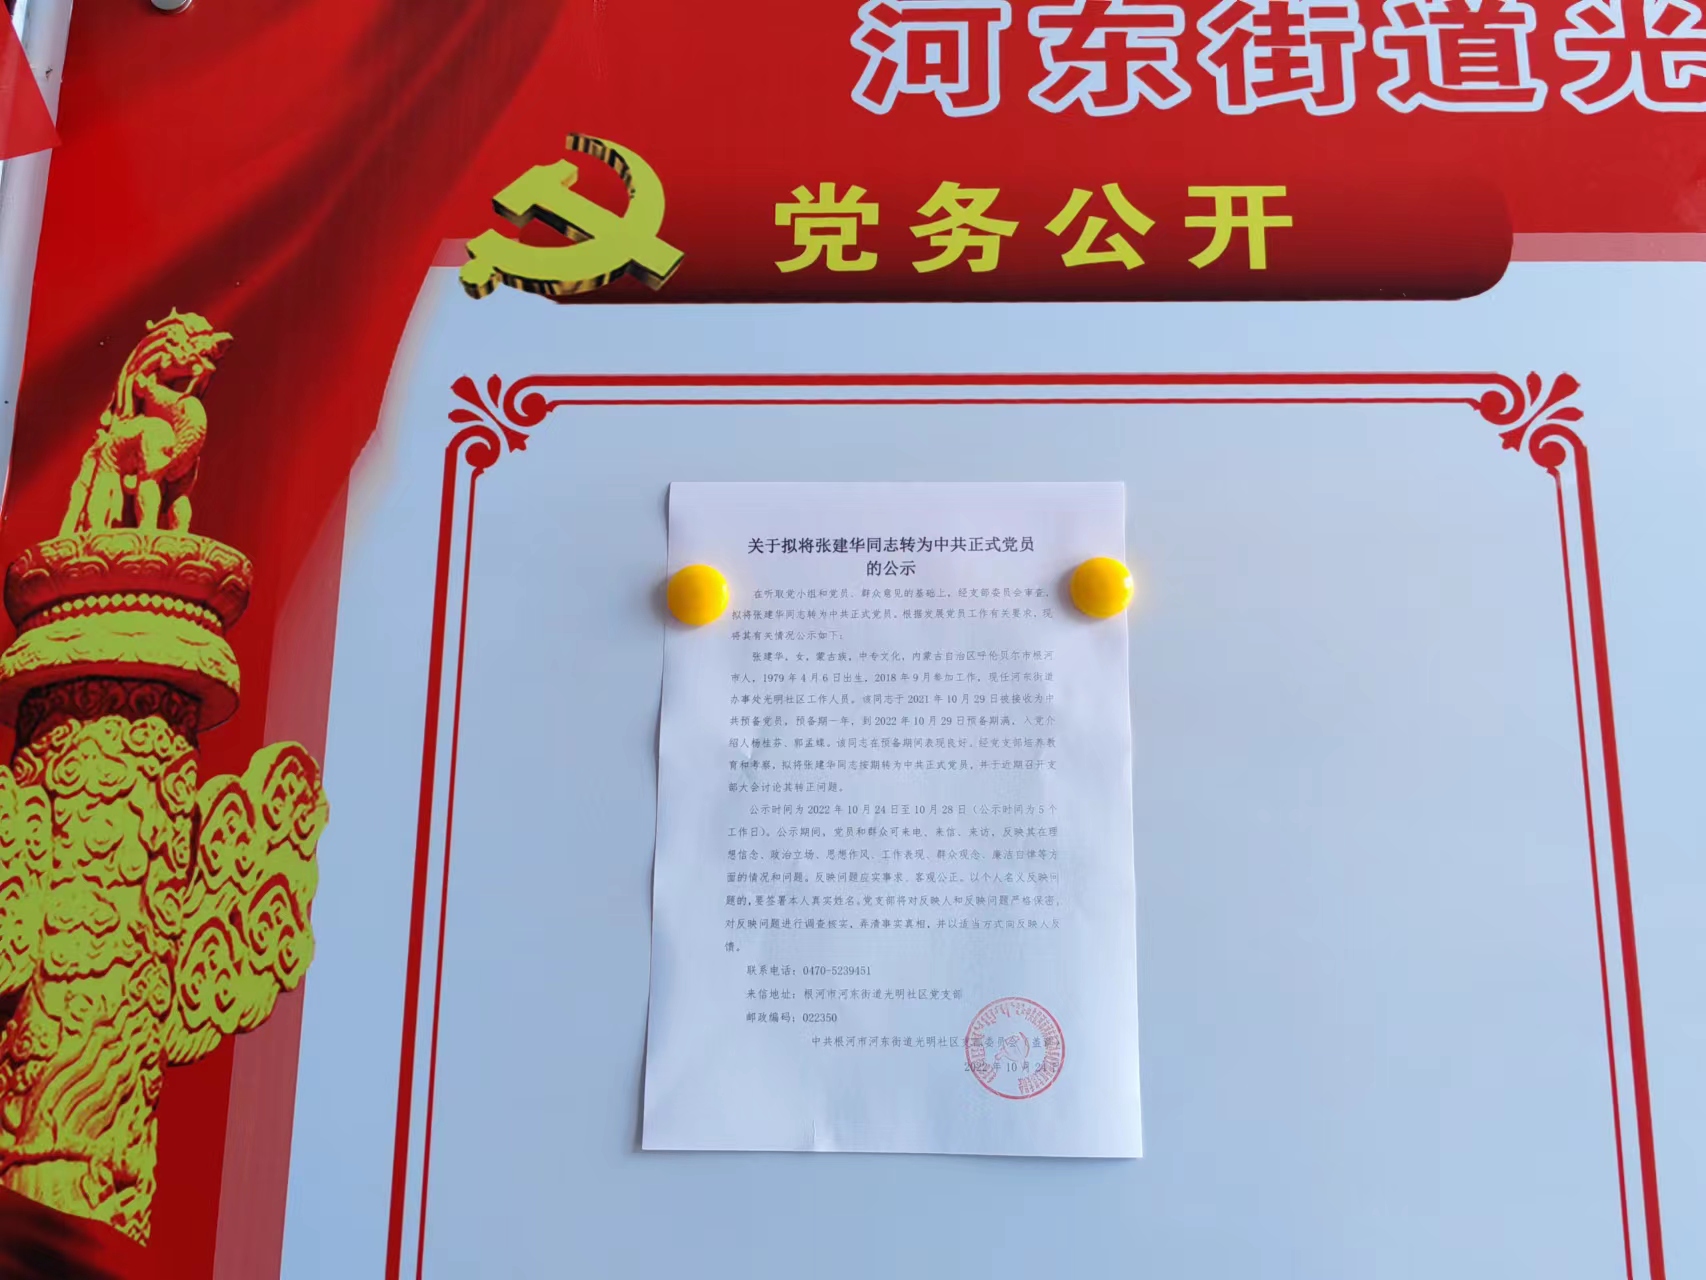 河东街道光
党务公开
关于拟将张建华同志转为中共正式党员
的公示
在听取党小组和党员、群众意见的基础上，经支部委员会审查，
拟将张建华同志转为中共正式党员。根据发展党员工作有关要求，现
将其有关情况公示如下：
张建华，女，蒙古族，中专文化，内蒙古自治区呼伦贝尔市根河
市人，1979年4月6日出生，2018年9月参加工作，现任河东街道
办事处光明社区工作人员。该同志于2021年10月29日被接收为中
共预备党员，预备期一年，到2022年10月29日预备期满，入党介
绍人杨桂芬、郭孟蝶。该同志在预备期间表现良好，经党支部培养教
育和考察，拟将张建华同志按期转为中共正式党员，并于近期召开支
部大会讨论其转正问题。
公示时间为2022年10月24日至10月28日（公示时间为5个
工作日）。公示期间，党员和群众可来电、来信、来访，反映其在理
想信念、政治立场、思想作风、工作表现、群众观念、廉洁自律等方
面的情况和问题。反映问题应实事求、客观公正。以个人名义反映问
题的，要签署本人真实姓名。党支部将对反映人和反映问题严格保密，
对反映问题进行调查核实，弄清事实真相，并以适当方式向反映人反
馈。
联系电话：0470-5239451
来信地址：根河市河东街道光明社区党支部
邮政编码：022350
中共根河市河东街道光明社区支部委员会（盖
2022年10月24日